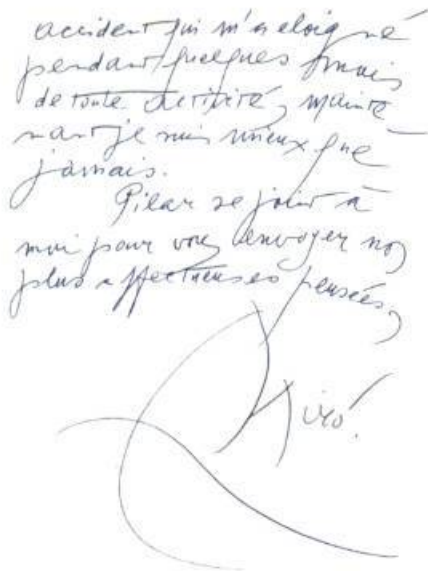 accident qui m'a eloigné
pendant quelques mois
de toute activité, mainte
nant je suis mieux que
jamais.
Pilar se joint à
moi pour vous envoyer nos
plus affectueuses pensées,
Miró.